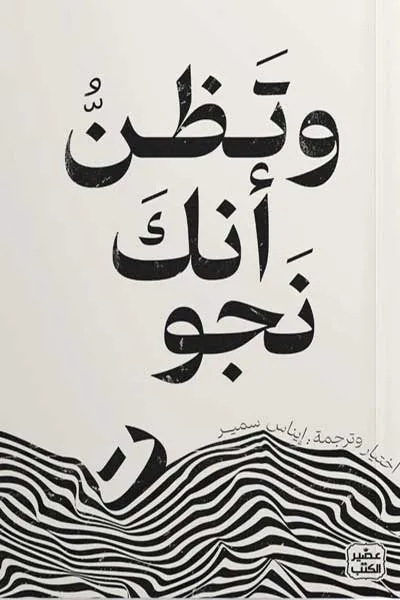 وتَظنُّ
أنكَ
نَجو
ت
اختيار وترجمة: إيناس سمير
عصير
الكتب